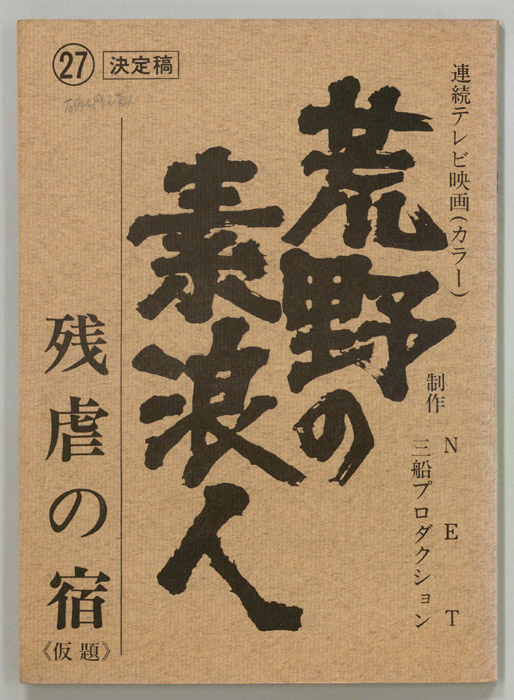 連続テレビ映画(カラー)
制作 NET
三船プロダクション
荒野の
素浪人
㉗ 決定稿
残虐の宿
《仮題》